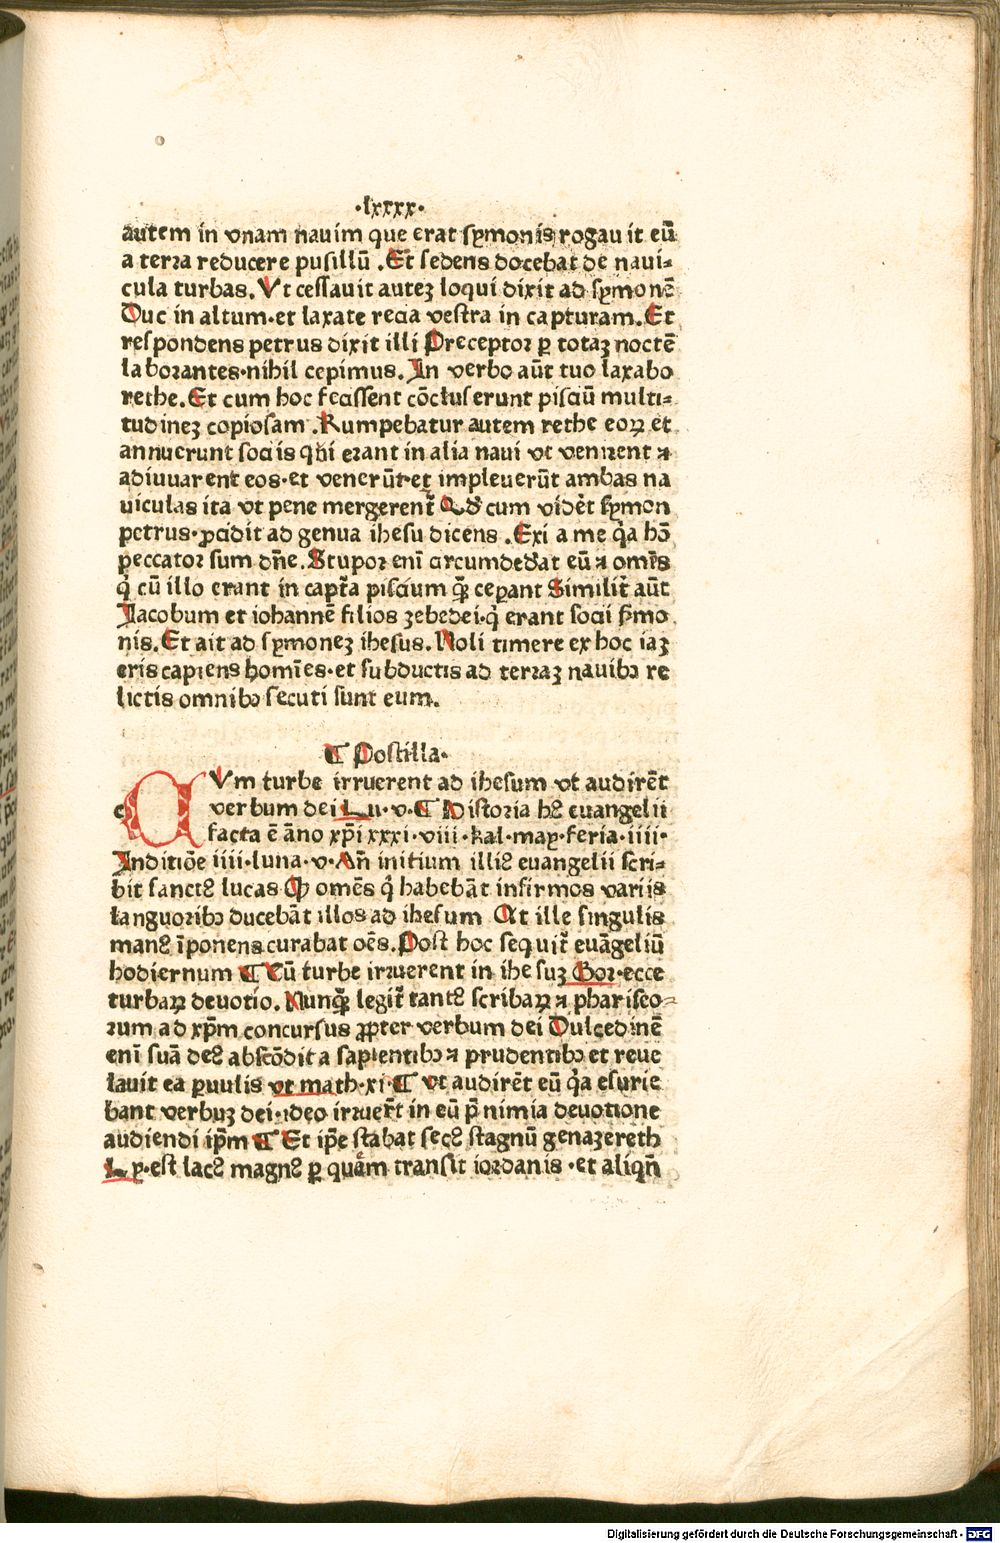 ·lxxxx·
autem in vnam nauim que erat symonis rogauit eū
a terra reducere pusillū .Et sedens docebat de naui⸗
cula turbas.Vt cessauit auteꝫ loqui dixit ad symonē
Duc in altum·et laxate recia vestra in capturam.Et
respondens petrus dixit illi Preceptor ꝑ totaꝫ noctē
laborantes·nihil cepimus.In verbo aūt tuo laxabo
rethe.Et cum hoc fecissent cōcluserunt pisciū multi⸗
tudineꝫ copiosam .Rumpebatur autem rethe eoꝝ et
annuerunt sociis qui erant in alia naui vt venirent ⁊
adiuuarent eos·et venerūt·et impleuerūt ambas na
uiculas ita vt pene mergerent᷑ Qd̕ cum vidēt symon
petrus·ꝓcidit ad genua ihesu dicens .Exi a me q̓a hō
peccator sum dn̄e.Stupor enī circumded̕at eū ⁊ omēs
q̓ cū illo erant in capt̄a piscium quā ceperant Similit᷑ aūt
Jacobum et iohannē filios zebedei·q̓ erant socii symo
nis.Et ait ad symoneꝫ ihesus.Noli timere ex hoc iaꝫ
eris capiens homīes·et subductis ad terraꝫ nauibꝫ re
lictis omnibꝫ secuti sunt eum.
¶ Postilla·
c Vm turbe irruerent ad ihesum vt audirēt
verbum dei Lu·v·¶ Historia hꝰ euangelii
facta ē āno xp̄i xxxi·viii·kal·may·feria·iiii·
Inditiōe iiii·luna·v·An̄ initium illiꝰ euangelii scri⸗
bit sanctꝰ lucas Qꝙ omēs q̓ habebāt infirmos variis
languoribꝫ ducebāt illos ad ihesum At ille singulis
manꝰ īponens curabat oēs.Post hoc sequit᷑ euāgeliū
hodiernum ¶ Cū turbe irruerent in ihesuꝫ Gor·ecce
turbaꝝ deuotio.Nunꝗ̄ legit᷑ tantꝰ scribaꝝ ⁊ phariseo⸗
rum ad xp̄m concursus ꝓpter verbum dei Dulcedinē
enī suā deꝰ abscōdit a sapientibꝫ ⁊ prudentibꝫ et reue
lauit ea ꝑuulis vt math·xi·¶ Vt audirēt eū q̓a esurie
bant verbuꝫ dei·ideo irruer̄t in eū p̄ nimia deuotione
audiendi ip̄m ¶ Et ip̄e stabat secꝰ stagnū genazereth
Ly·est lacꝰ magnꝰ ꝑ quam transit iordanis ·et aliqn̄
Digitalisierung gefördert durch die Deutsche Forschungsgemeinschaft - DFG